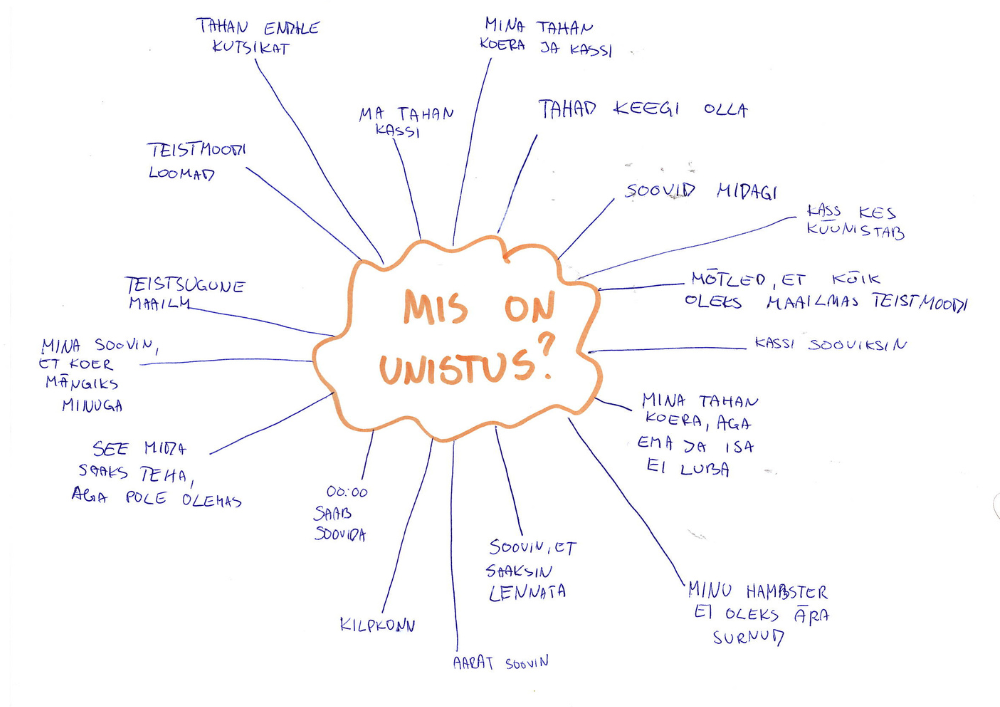 TAHAN ENDALE
KUTSIKAT
MINA TAHAN
KOERA JA KASSI
MA TAHAN
KASSI
TAHAD KEEGI OLLA
TEISTMOODI
LOOMAD
SOOVID MIDAGI
KASS KES
KÜÜNISTAB
TEISTSUGUNE
MAAILM
MÕTLED, ET KÕIK
OLEKS MAAILMAS TEISTMOODI
MIS ON
UNISTUS?
MINA SOOVIN,
ET KOER
MÄNGIKS
MINUGA
KASSI SOOVIKSIN
MINA TAHAN
KOERA, AGA
EMA JA ISA
EI LUBA
SEE MIDA
SAAKS TEHA,
AGA POLE OLEMAS
00:00
SAAB
SOOVIDA
SOOVIN, ET
SAAKSIN
LENNATA
MINU HAMBSTER
EI OLEKS ÄRA
SURNUD
KILPKONN
AARAT SOOVIN